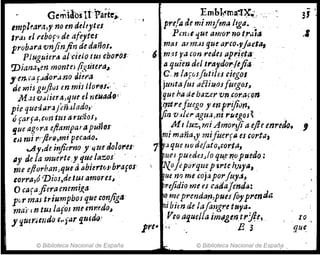 Gemidos II Parte,
emplrara, y no en deleytes
tras el reboço de afeytes
probara vn fin fin de daños.
Pluguiera al cielo tus choros
Diana, en montes siguiera,
y en caçadora no diera
de mis gustos en mis lloros.
que quedara señalado,
ò çarça, con tus
que agora estampar a puños
en mi fiera, mi pecado.
Ay, de infierno y que dolores
ay de la muerte y que lazos
me esforban, que à abiertos braços
corro, ò Dios, de tus amores,
O caça fiera enemiga
por mas triumphos que consiga
mas en tus laços me enredo,
y queriendo
pre-
Emblema IX. 35
presa de mi misma liga.
Pense que amor no traia
mas armas que arco, y saeta,
mas ya con redes aprieta
a quien del traydor se fia
Con laços sutiles ciegos
junta sus actiuos fuegos,
que ha de hazer vn coraçon
entre fuego y en prision,
sin valer agua, ni ruegos?
Mi luz, mi Amor si a este enredo, 9
ni maña, y mi fuerça es corta,
7 ya que no desato, corta,
pues puedes, lo que no puedo:
No se porque parte huya,
que no me coja por suya,
presidio me es cada senda:
o me prendan, pues soy prenda
ni bien de la sangre tuya.
Veo aquella imagen triste, 10
E 3 que
© Biblioteca Nacional de España
© Biblioteca Nacional de España